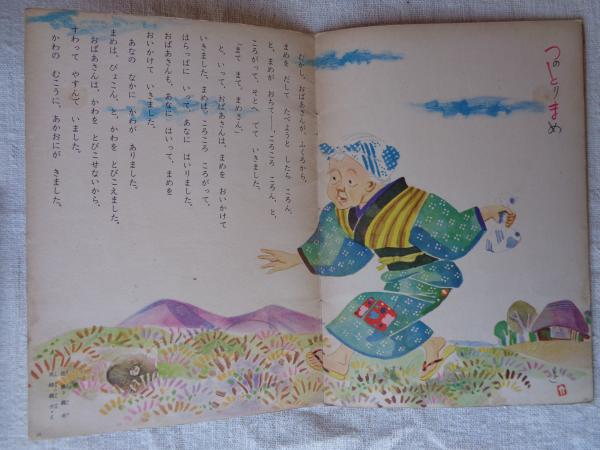 つのとりまめ
むかし、おばあさんが、ふくろから、
まめを だして たべようと したら ころん、
と、まめが おちて――ころころ ころん、と、
ころがって、そとへ でて いきました。
「まて まて、まめさん」
と、いって、おばあさんは、まめを おいかけて
いきました。まめは、ころころ ころがって、
はらっぱに いって、あなに はいりました。
おばあさんも、あなに はいって、まめを
おいかけて いきました。
あなの なかに かわが ありました。
まめは、ぴょこん、と、かわを とびこえました。
おばあさんは、かわを とびこせないから、
すわって やすんで いました。
かわの むこうに、あかおにが きました。